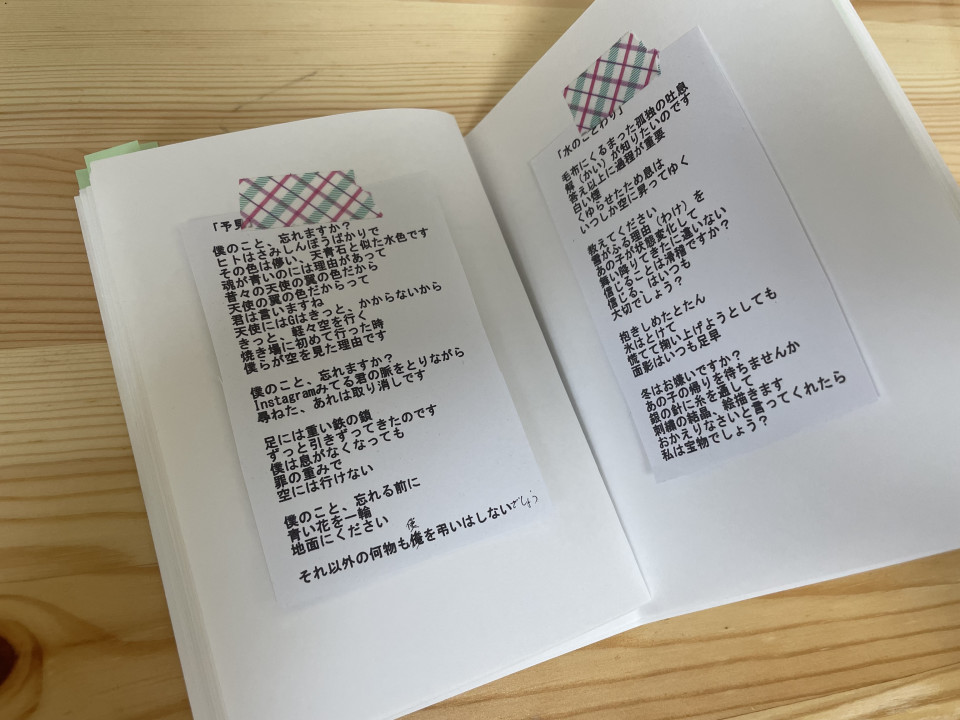 「予見
僕のこと、忘れますか？
ヒトはさみしんぼうばかりで
その色は儚い、天青石と似た水色です
魂が青いのには理由があって
昔々の天使の翼の色だから
天使の翼の色だからって
君は言いますね
天使にはGはきっと、かからないから
きっと、軽々空を行く
焼き場に初めて行った時
僕らが空を見た理由です
僕のこと、忘れますか？
Instagramみてる君の脈をとりながら
尋ねた、あれは取り消しです
足には重い鉄の鎖
ずっと引きずってきたのです
僕は息がなくなっても
罪の重みで
空には行けない
僕のこと、忘れる前に
青い花を一輪
地面にください
それ以外の何物も僕を弔いはしないでしょう
「水のことわり」
毛布にくるまった孤独の吐息
解（かい）が知りたいのです
答え以上に過程が重要
白い煙
くゆらせたため息は
いつしか空に昇ってゆく
教えてください
雪がふる理由（わけ）を
あの子が状態変化して
舞い降りてきたに違いない
信じることは滑稽ですか？
信じる、はいつも
大切でしょう？
抱きしめたとたん
氷はとけて
慌てて掬い上げようとしても
面影はいつも足早
冬はお嫌いですか？
あの子の帰りを待ちませんか
銀の針に糸を通して
刺繍の結晶、絵描きます
おかえりなさいと言ってくれたら
私は宝物でしょう？